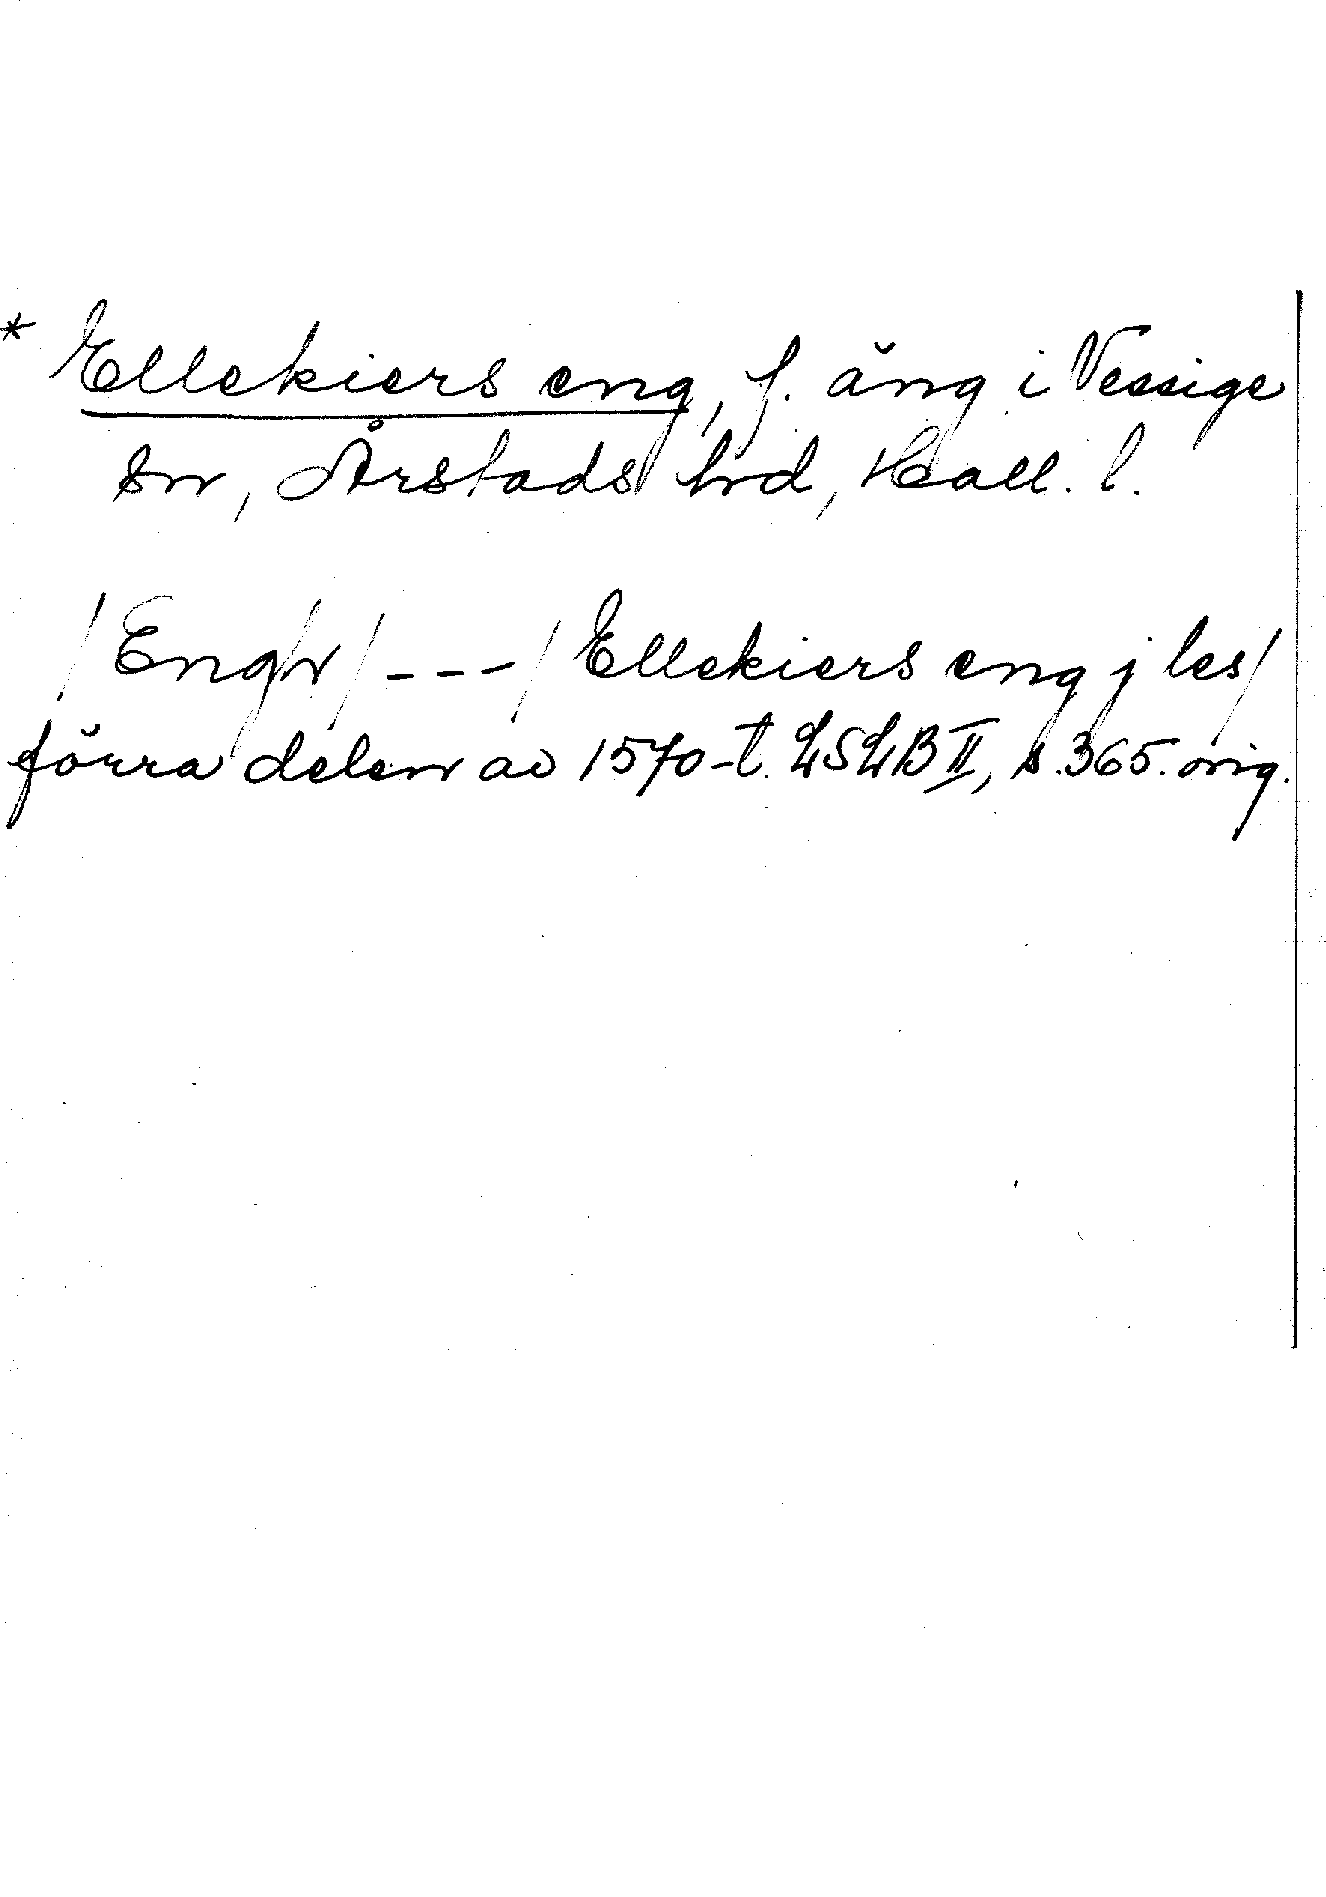 * Ellekiers eng, f. äng i Vessige
sn, Årstads hrd, Hall. l.
/Engn/ --- / Ellekiers eng j les/
förra delen av 1570-t. LSLB II, s. 365. orig.